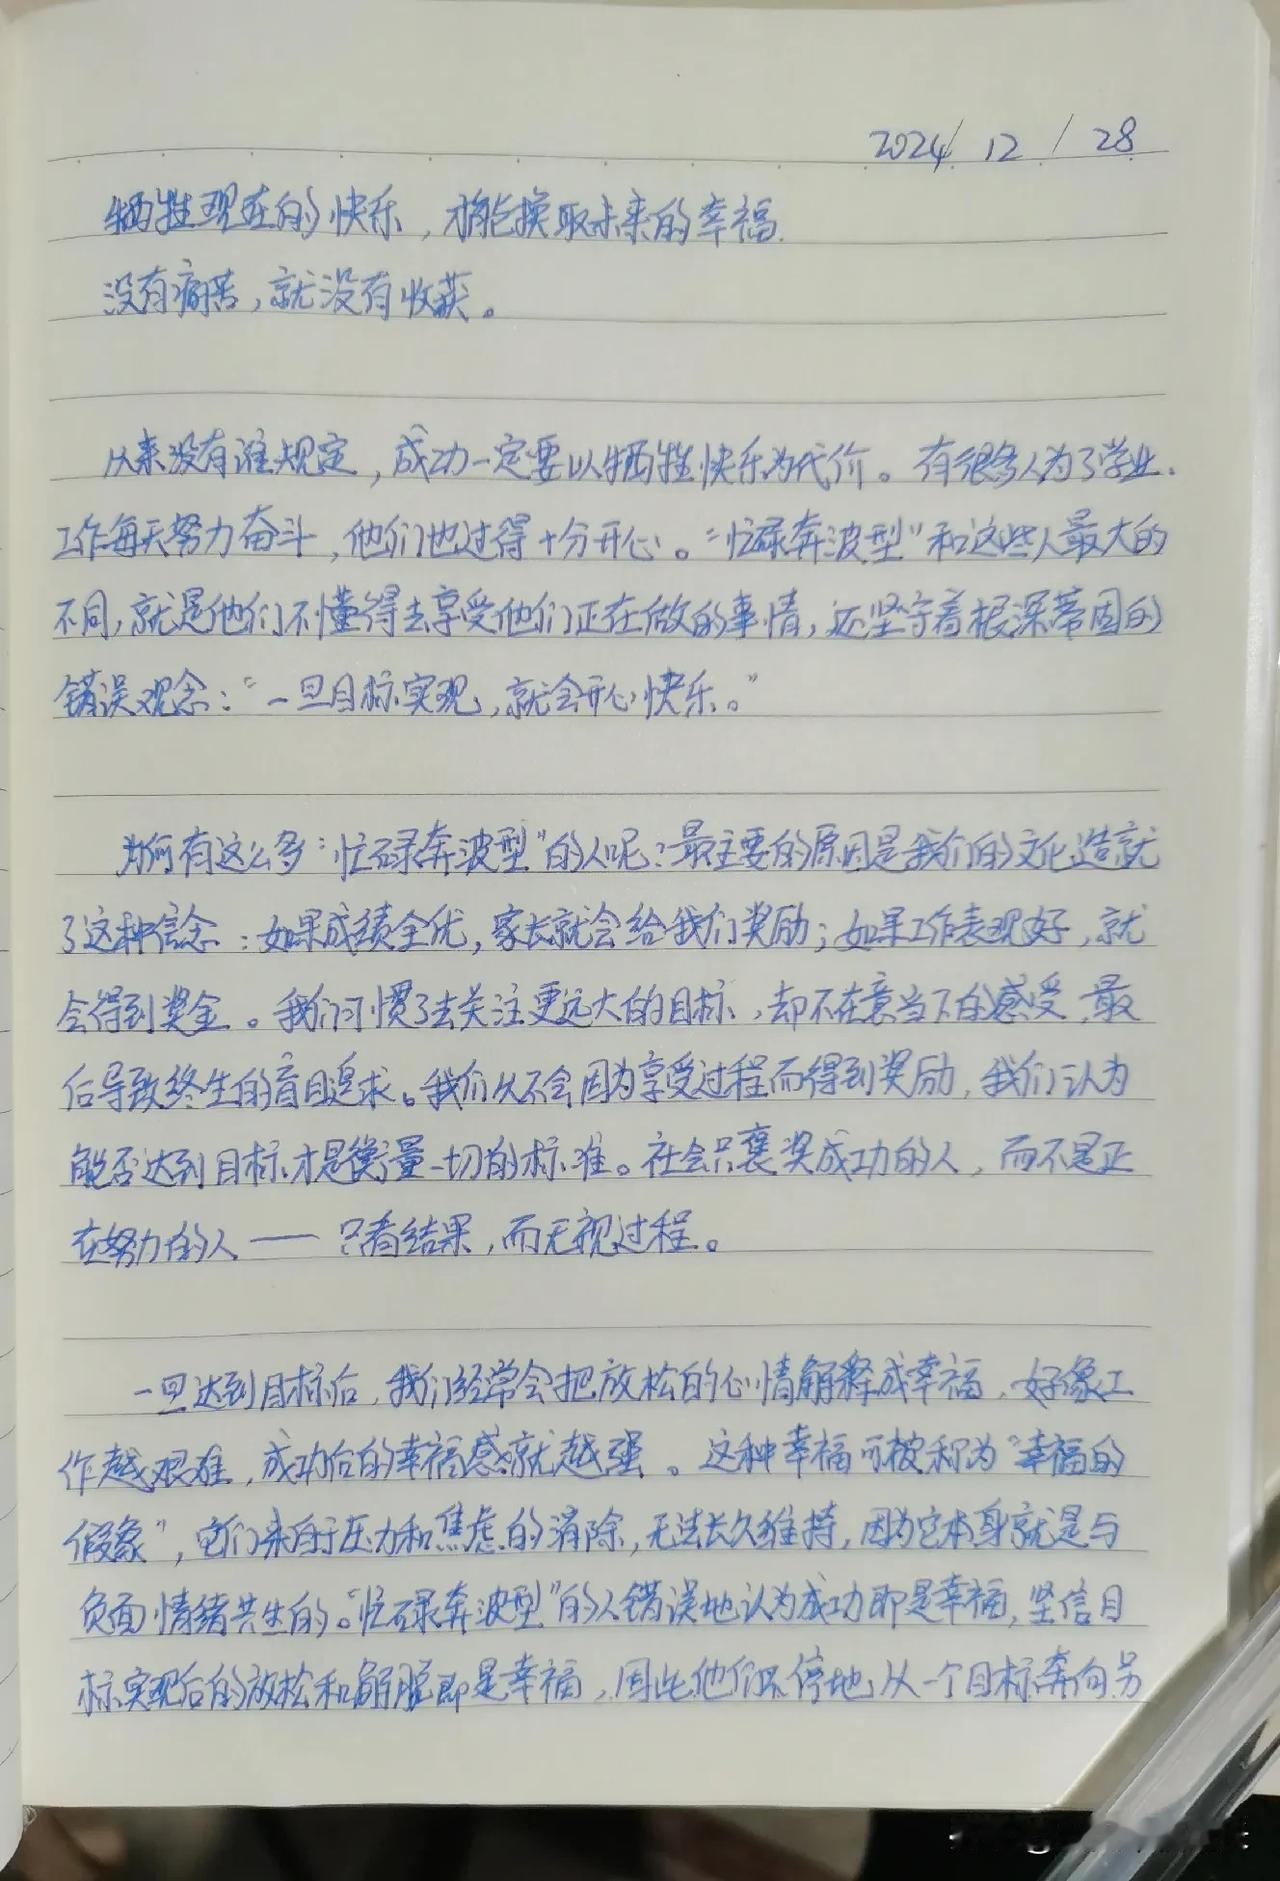 2024/12/28
牺牲现在的快乐，才能换取未来的幸福.
没有痛苦，就没有收获。
从来没有谁规定，成功一定要以牺牲快乐为代价。有很多人为了学业、
工作每天努力奋斗，他们也过得十分开心。“忙碌奔波型”和这些人最大的
不同，就是他们不懂得去享受他们正在做的事情，还坚守着根深蒂固的
错误观念：“一旦目标实现，就会开心快乐。”
为何有这么多“忙碌奔波型”的人呢？最主要的原因是我们的文化造就
了这种信念：如果成绩全优，家长就会给我们奖励；如果工作表现好，就
会得到奖金。我们习惯了去关注更远大的目标，却不在意当下的感受，最
后导致终生的盲目追求。我们从不会因为享受过程而得到奖励，我们认为
能否达到目标才是衡量一切的标准。社会只褒奖成功的人，而不是正
在努力的人——只看结果，而无视过程。
一旦达到目标后，我们经常会把放松的心情解释成幸福，好象工
作越艰难，成功后的幸福感就越强。这种幸福可被称为“幸福的
假象”，它们来自于压力和焦虑的消除，无法长久维持，因为它本身就是与
负面情绪共生的。“忙碌奔波型”的人错误地认为成功即是幸福，坚信目
标实现后的放松和解脱即是幸福，因此他们不停地从一个目标奔向另